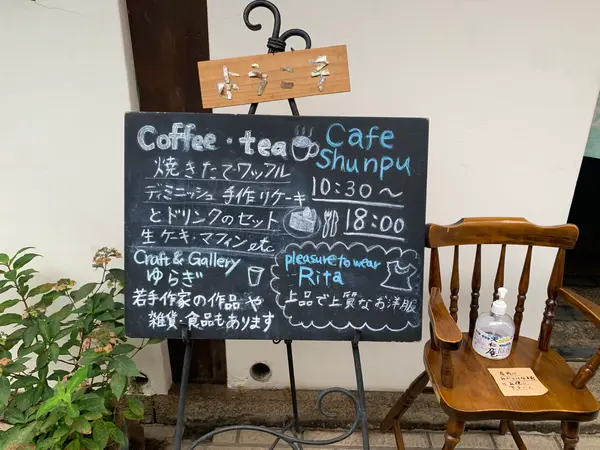 ようこそ
Coffee・tea
Cafe
Shunpu
焼きたてワッフル
10:30〜
18:00
デミニッシュ 手作りケーキ
とドリンクのセット
生ケーキ・マフィン etc
Craft & Gallery
ゆらぎ
若手作家の作品や
雑貨・食品もあります
pleasure to wear
Rita
上品で上質なお洋服